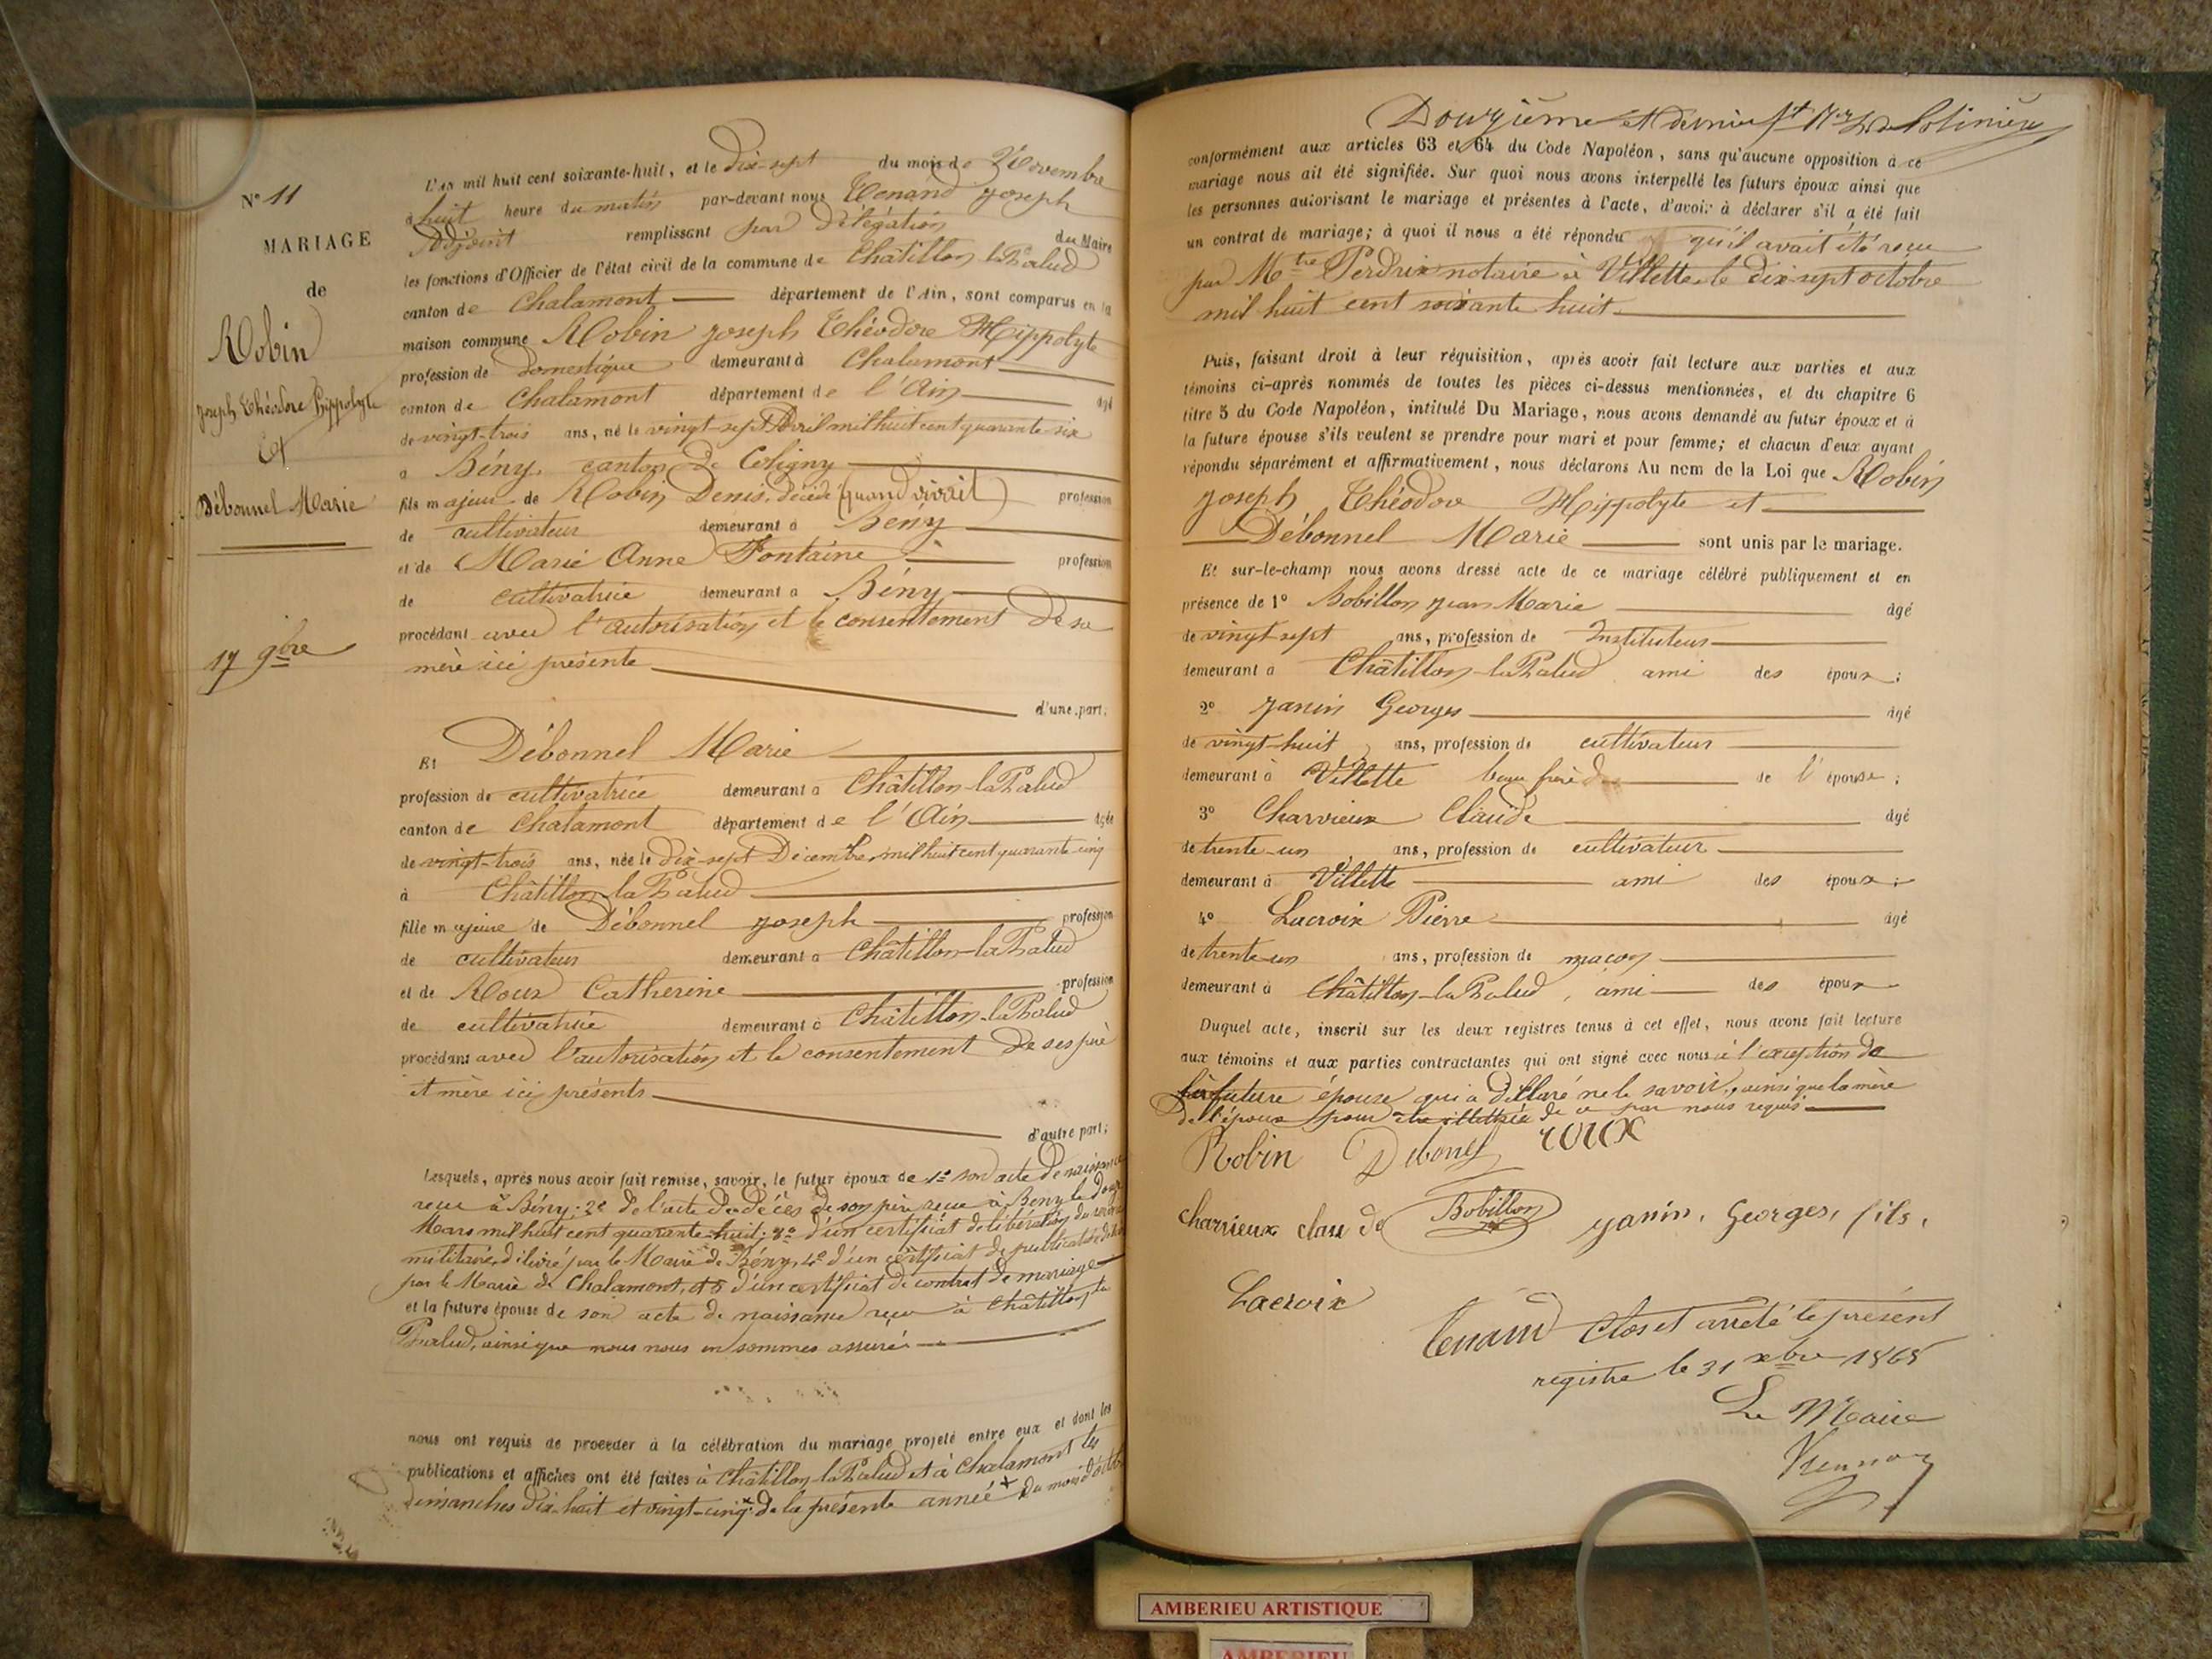 N° 11
MARIAGE
de
Robin
Joseph Théodore Hippolyte
Et
Débonnel Marie
17 9bre
L'an mil huit cent soixante-huit, et le dix-sept du mois de Novembre
à huit heure du matin par-devant nous Tenand Joseph
Adjoint remplissant par Délégation du Maire
les fonctions d'Officier de l'état civil de la commune de Châtillon-la-Palud
canton de Chalamont département de l'Ain, sont comparus en la
maison commune Robin Joseph Théodore Hippolyte
profession de domestique demeurant à Chalamont
canton de Chalamont département de l'Ain âgé
de vingt-trois ans, né le vingt-sept Avril mil huit cent quarante-six
a Bény canton de Coligny
fils majeur de Robin Denis, décédé (quand vivait) profession
de cultivateur demeurant à Bény
et de Marie Anne Fontaine profession
de cultivatrice demeurant à Bény
procédant avec l'autorisation et le consentement de sa
mère ici présente
d'une part;
Et Débonnel Marie
profession de cultivatrice demeurant à Châtillon-la-Palud
canton de Chalamont département de l'Ain âgée
de vingt-trois ans, née le dix-sept Décembre mil huit cent quarante-cinq
à Châtillon-la-Palud
fille majeure de Débonnel Joseph profession
de cultivateur demeurant à Châtillon-la-Palud
et de Roux Catherine profession
de cultivatrice demeurant à Châtillon-la-Palud
procédant avec l'autorisation et le consentement de ses père
et mère ici présents
d'autre part;
Lesquels, après nous avoir fait remise, savoir, le futur époux de 1° son acte de naissance
reçu à Bény; 2° de l'acte de décès de son père reçu à Bény le
Mars mil huit cent quarante-huit; 3° d'un certificat de libération du service
militaire, délivré par le Maire de Bény, 4° d'un certificat de publication
par le Maire de Chalamont, et 5 d'un certificat de contrat de mariage
et la future épouse de son acte de naissance reçu à Châtillon la
Palud, ainsi que nous nous en sommes assuré
nous ont requis de procéder à la célébration du mariage projeté entre eux et dont les
publications et affiches ont été faites à Châtillon-la-Palud et à Chalamont les
dimanches dix-huit et vingt-cinq + de la présente année + du mois d'octobre
Douzième et dernier
conformément aux articles 63 et 64 du Code Napoléon, sans qu'aucune opposition à ce
mariage nous ait été signifiée. Sur quoi nous avons interpellé les futurs époux ainsi que
les personnes autorisant le mariage et présentes à l'acte, d'avoir à déclarer s'il a été fait
un contrat de mariage; à quoi il nous a été répondu qu'il avait été reçu
par Mtre Perdrix notaire à Villette le dix-sept octobre
mil huit cent soixante huit.
Puis, faisant droit à leur réquisition, après avoir fait lecture aux parties et aux
témoins ci-après nommés de toutes les pièces ci-dessus mentionnées, et du chapitre 6
titre 5 du Code Napoléon, intitulé Du Mariage, nous avons demandé au futur époux et à
la future épouse s'ils veulent se prendre pour mari et pour femme; et chacun d'eux ayant
répondu séparément et affirmativement, nous déclarons Au nom de la Loi que Robin
Joseph Théodore Hippolyte et
Débonnel Marie sont unis par le mariage.
Et sur-le-champ nous avons dressé acte de ce mariage célébré publiquement et en
présence de 1° Bobillon Jean Marie âgé
de vingt sept ans, profession de Instituteur
demeurant à Châtillon-la-Palud ami des époux;
2° Janin Georges âgé
de vingt-huit ans, profession de cultivateur
demeurant à Villette beau frère de l'épouse;
3° Charvieux Claude âgé
de trente-un ans, profession de cultivateur
demeurant à Villette ami des époux;
4° Lacroix Pierre âgé
de trente-un ans, profession de maçon
demeurant à Châtillon-la-Palud, ami des époux
Duquel acte, inscrit sur les deux registres tenus à cet effet, nous avons fait lecture
aux témoins et aux parties contractantes qui ont signé avec nous à l'exception de
la future épouse qui a déclaré ne le savoir, ainsi que la mère
de l'époux pour de ce par nous requis
Robin Debonel roux
charvieux claude Bobillon janin, Georges, fils,
Lacroix
Tenand Clos et arrêté le présent
registre le 31 xbre 1868
Le Maire
AMBERIEU ARTISTIQUE
AMBERIEU